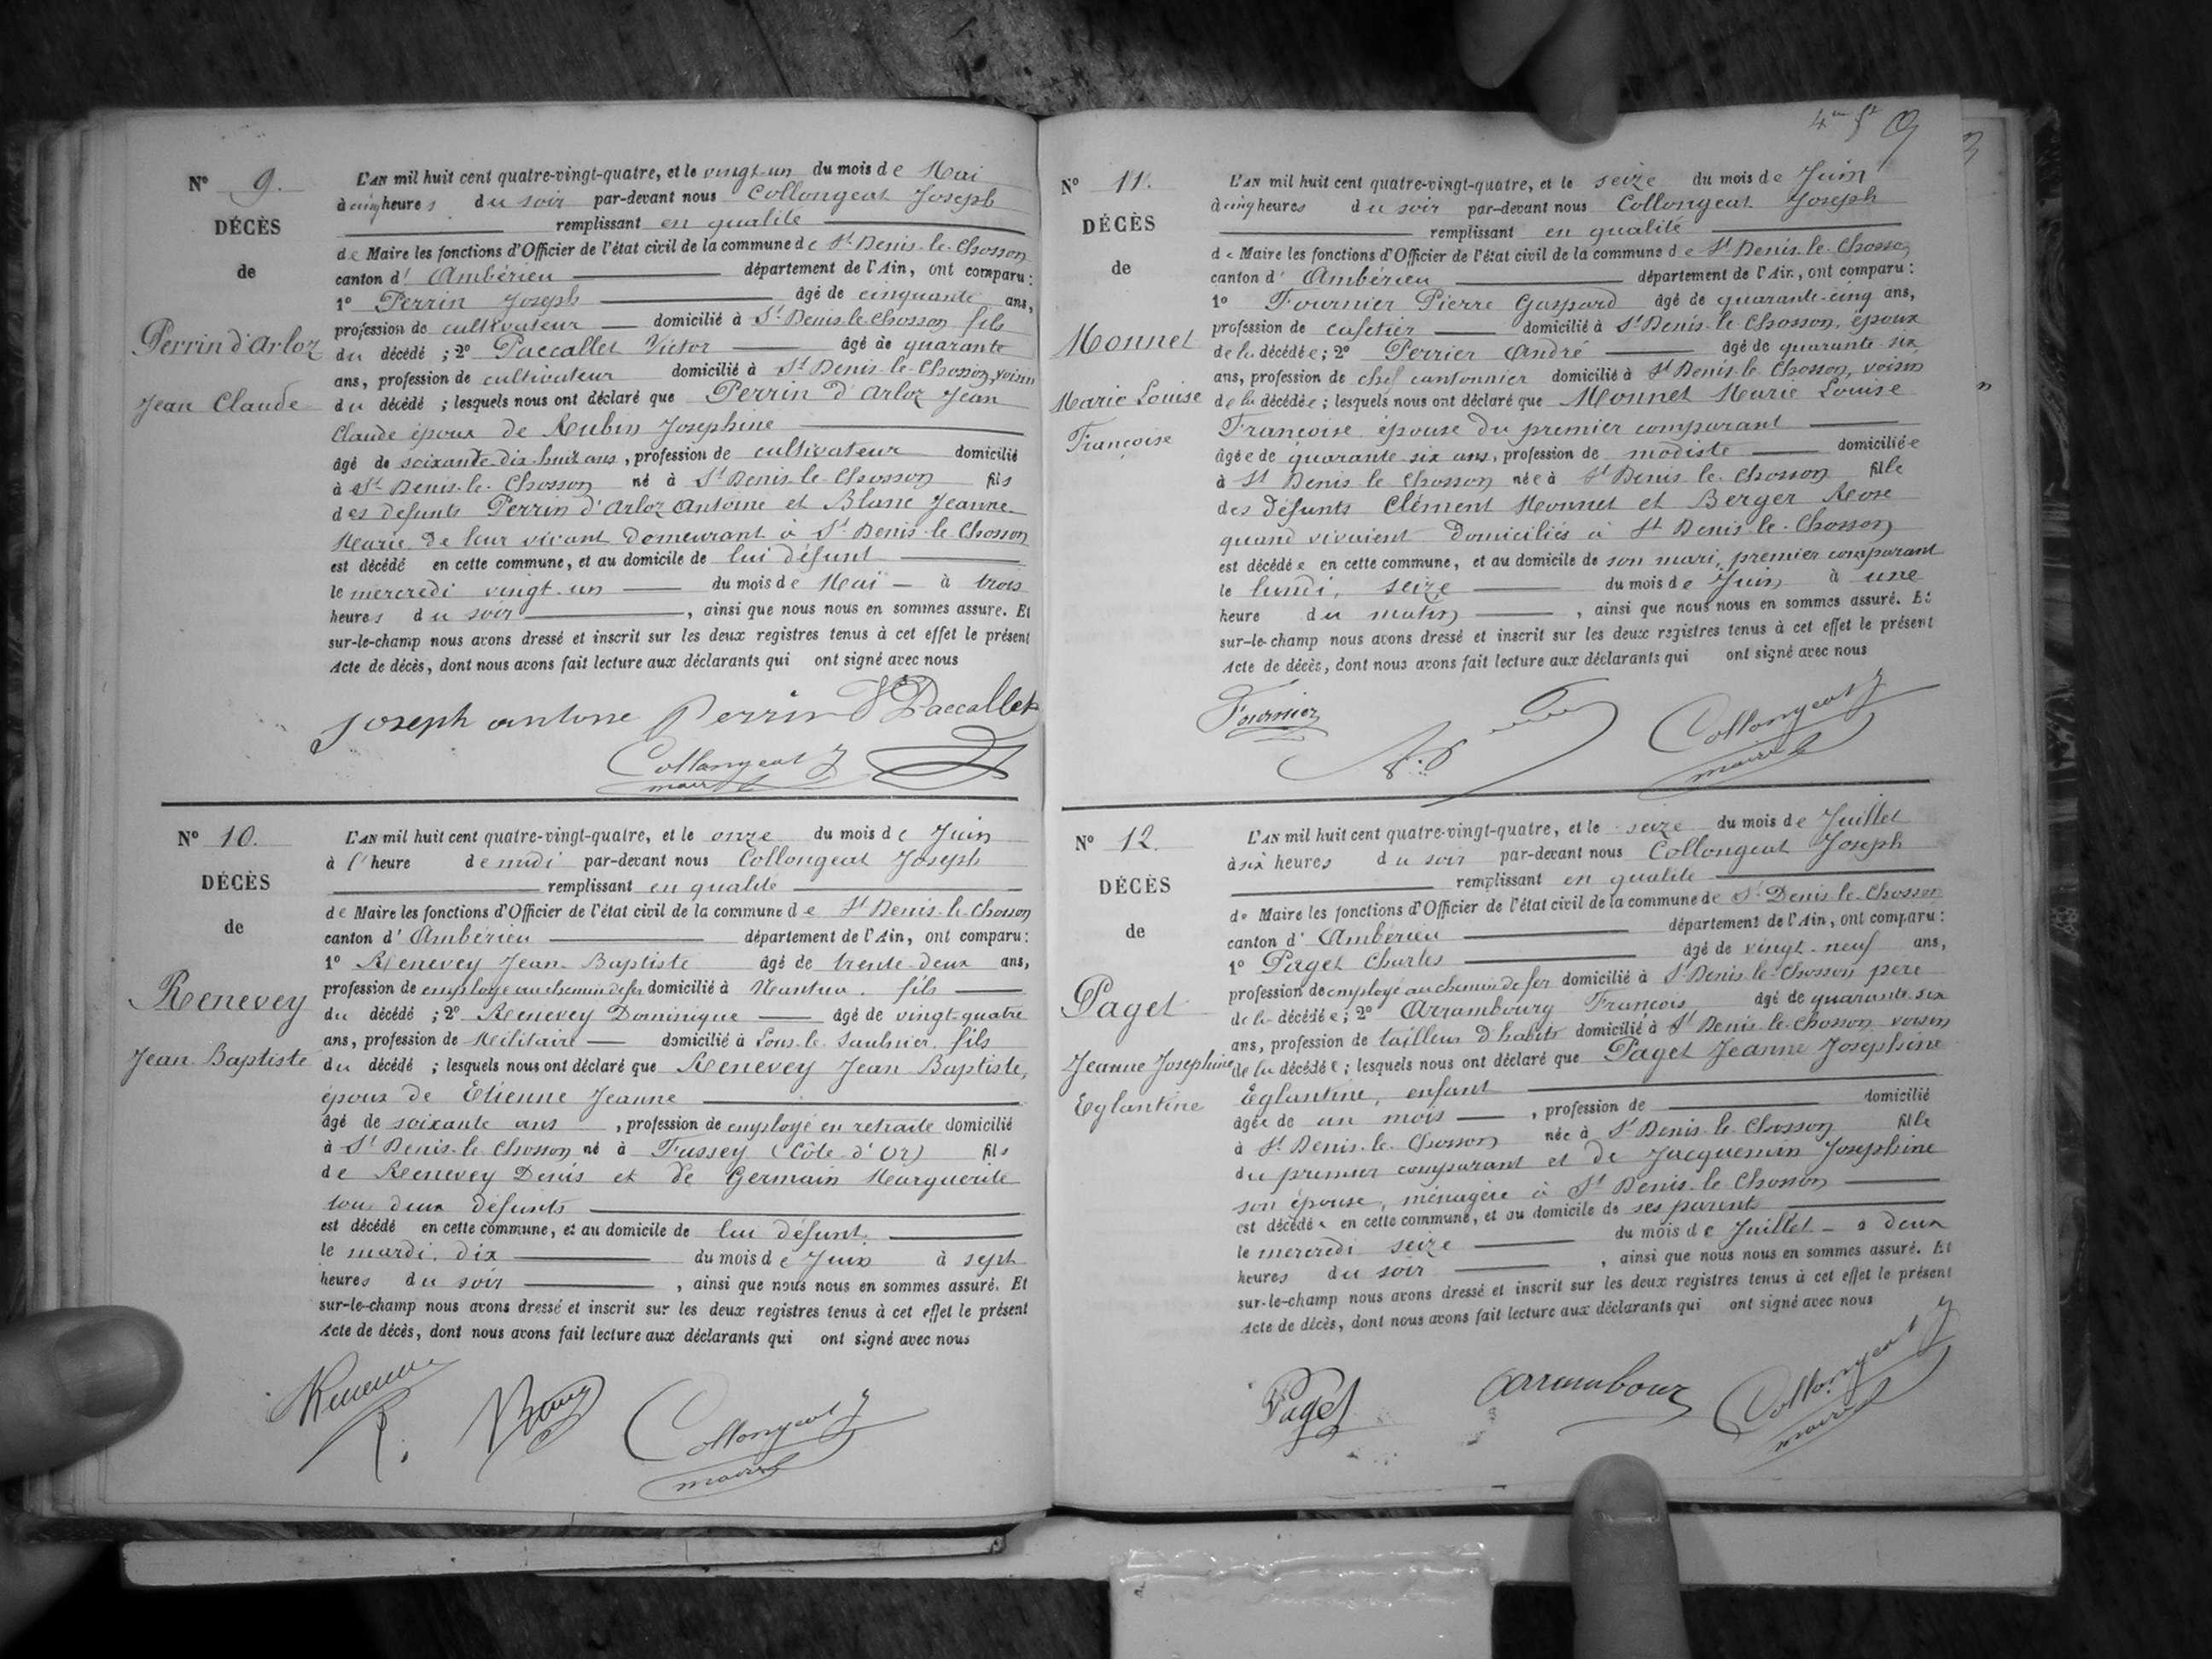 N° 9.
DÉCÈS
de
Perrin d'Arloz
Jean Claude
L'AN mil huit cent quatre-vingt-quatre, et le vingt-un du mois de Mai
à cinq heures du soir par-devant nous Collongeat Joseph
remplissant en qualité
de Maire les fonctions d'Officier de l'état civil de la commune de St Denis-le-Chosson
canton d'Ambérieu département de l'Ain, ont comparu :
1° Perrin Joseph âgé de cinquante ans,
profession de cultivateur domicilié à St Denis le Chosson fils
du décédé ; 2° Paccallet Victor âgé de quarante
ans, profession de cultivateur domicilié à St Denis-le-Chosson, voisin
du décédé ; lesquels nous ont déclaré que Perrin d'Arloz Jean
Claude époux de Rubin Josephine
âgé de soixante-dix-huit ans, profession de cultivateur domicilié
à St Denis-le-Chosson né à St Denis-le-Chosson fils
des défunts Perrin d'Arloz Antoine et Blanc Jeanne-
Marie de leur vivant demeurant à St Denis-le-Chosson
est décédé en cette commune, et au domicile de lui défunt
le mercredi vingt-un du mois de Mai à trois
heures du soir, ainsi que nous nous en sommes assuré. Et
sur-le-champ nous avons dressé et inscrit sur les deux registres tenus à cet effet le présent
Acte de décès, dont nous avons fait lecture aux déclarants qui ont signé avec nous
Joseph antone Perrin V Paccallet
Collongeat J
maire
N° 10.
DÉCÈS
de
Renevey
Jean-Baptiste
L'AN mil huit cent quatre-vingt-quatre, et le onze du mois de Juin
à l'heure de midi par-devant nous Collongeat Joseph
remplissant en qualité
de Maire les fonctions d'Officier de l'état civil de la commune de St Denis-le-Chosson
canton d'Ambérieu département de l'Ain, ont comparu :
1° Renevey Jean-Baptiste âgé de trente-deux ans,
profession de employé au chemin de fer domicilié à Nantua. fils
du décédé ; 2° Renevey Dominique âgé de vingt-quatre
ans, profession de Militaire domicilié à Lons-le-Saulnier. fils
du décédé ; lesquels nous ont déclaré que Renevey Jean Baptiste,
époux de Etienne Jeanne
âgé de soixante ans, profession de employé en retraite domicilié
à St Denis-le-Chosson né à Fussey (Côte-d'Or) fils
de Renevey Denis et de Germain Marguerite
tous deux défunts
est décédé en cette commune, et au domicile de lui défunt
le mardi, dix du mois de Juin à sept
heures du soir, ainsi que nous nous en sommes assuré. Et
sur-le-champ nous avons dressé et inscrit sur les deux registres tenus à cet effet le présent
Acte de décès, dont nous avons fait lecture aux déclarants qui ont signé avec nous
Collongeat J
maire
4me ft 9
N° 11.
DÉCÈS
de
Monnet
Marie Louise
Françoise
L'AN mil huit cent quatre-vingt-quatre, et le seize du mois de Juin
à cinq heures du soir par-devant nous Collongeat Joseph
remplissant en qualité
de Maire les fonctions d'Officier de l'état civil de la commune de St Denis-le-Chosson
canton d'Ambérieu département de l'Ain, ont comparu :
1° Fournier Pierre Gaspard âgé de quarante-cinq ans,
profession de cafetier domicilié à St Denis-le-Chosson, époux
de la décédée ; 2° Perrier André âgé de quarante-six
ans, profession de chef cantonnier domicilié à St Denis le Chosson, voisin
de la décédée ; lesquels nous ont déclaré que Monnet Marie Louise
Françoise épouse du premier comparant
âgée de quarante-six ans, profession de modiste domiciliée
à St Denis le Chosson née à St Denis le Chosson fille
des défunts Clément Monnet et Berger Rose
quand vivaient domiciliés à St Denis-le-Chosson
est décédée en cette commune, et au domicile de son mari, premier comparant
le lundi, seize du mois de Juin à une
heure du matin, ainsi que nous nous en sommes assuré. Et
sur-le-champ nous avons dressé et inscrit sur les deux registres tenus à cet effet le présent
Acte de décès, dont nous avons fait lecture aux déclarants qui ont signé avec nous
Fournier
A.P
Collongeat J
maire
N° 12.
DÉCÈS
de
Paget
Jeanne Josephine
Eglantine
L'AN mil huit cent quatre-vingt-quatre, et le seize du mois de Juillet
à six heures du soir par-devant nous Collongeat Joseph
remplissant en qualité
de Maire les fonctions d'Officier de l'état civil de la commune de St Denis-le-Chosson
canton d'Ambérieu département de l'Ain, ont comparu :
1° Paget Charles âgé de vingt-neuf ans,
profession de employé au chemin de fer domicilié à St Denis-le-Chosson père
de la décédée ; 2° Arrambourg François âgé de quarante-six
ans, profession de tailleur d'habits domicilié à St Denis-le-Chosson voisin
de la décédée ; lesquels nous ont déclaré que Paget Jeanne Josephine
Eglantine, enfant
âgée de un mois, profession de domicilié
à St Denis-le-Chosson née à St Denis-le-Chosson fille
du premier comparant et de Jacquemin Josephine
son épouse, ménagère à St Denis-le-Chosson
est décédée en cette commune, et au domicile de ses parents
le mercredi seize du mois de Juillet à deux
heures du soir, ainsi que nous nous en sommes assuré. Et
sur-le-champ nous avons dressé et inscrit sur les deux registres tenus à cet effet le présent
Acte de décès, dont nous avons fait lecture aux déclarants qui ont signé avec nous
Paget
Arrambour
Collongeat J
maire